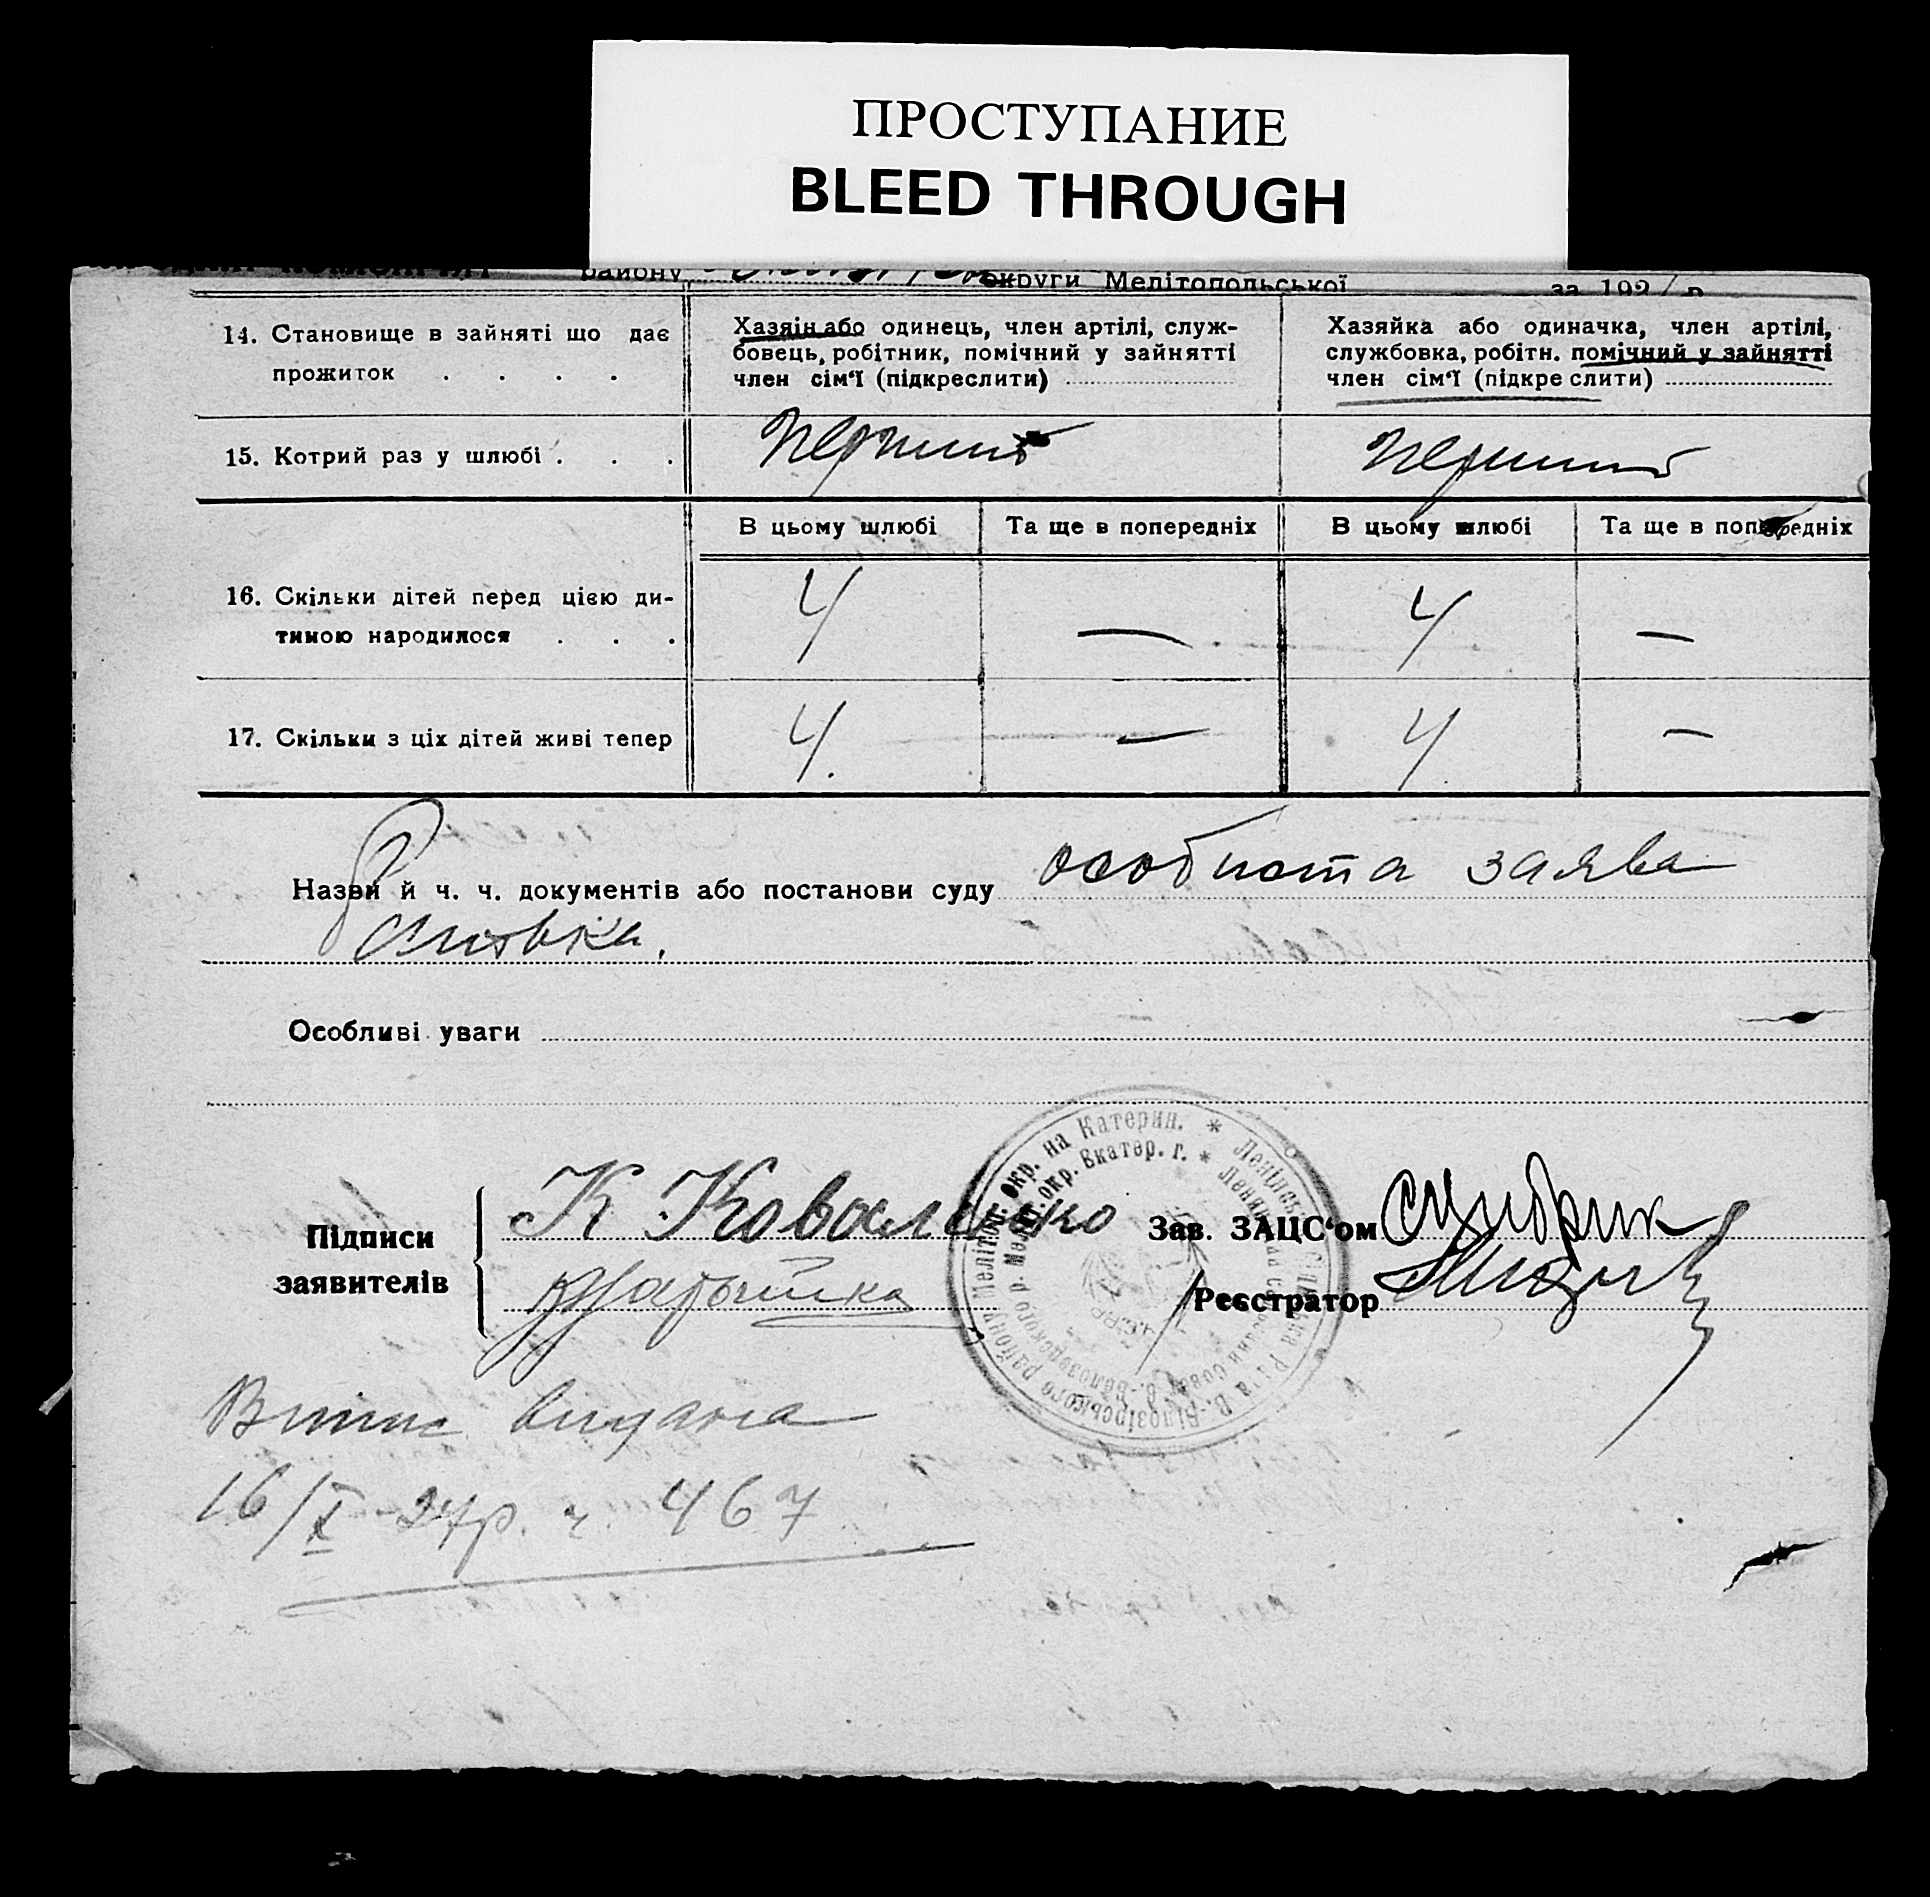 ПРОСТУПАНИЕ
BLEED THROUGH
району округи Мелітопольської за 192 р
14. Становище в зайняті що дає прожиток . . . .
Хазяін або одинець, член артілі, служ-
бовець, робітник, помічний у зайнятті
член сім'ї (підкреслити)
Хазяйка або одиначка, член артілі,
службовка, робітн. помічний у зайнятті
член сім'ї (підкреслити)
15. Котрий раз у шлюбі . . . перший перший
В цьому шлюбі Та ще в попередніх В цьому шлюбі Та ще в попередніх
16. Скільки дітей перед цією ди-
тиною народилося . . . 4 — 4 —
17. Скільки з ціх дітей живі тепер 4. — 4 —
Назви й ч. ч. документів або постанови суду особиста заява
Особливі уваги
Підписи
заявителів
К Коваленко
Зав. ЗАЦС'ом
Реєстратор
Мелітоп. окр. на Катерин. * Ленінська Сільська Рада В.-Білозірського району
Випис видана
16/X-27р. ч. 467